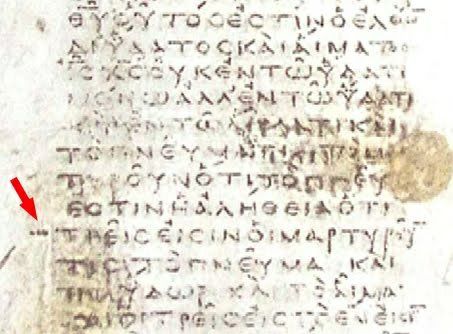 ΘΥΟΥΤΟϹΕϹΤΙΝΟΕΛΘΩ
ΔΙΥΔΑΤΟϹΚΑΙΑΙΜΑΤΟϹ
ΙϹΧϹΟΥΚΕΝΤΩΥΔΑΤΙ
ΜΟΝΩΑΛΛΕΝΤΩΥΔΑΤΙ
ΚΑΙΕΝΤΩΑΙΜΑΤΙΚΑΙ
ΤΟΠΝΕΥΜΑ
ΤΥΡΟΥΝΟΤΙΤΟΠΝΕΥ
ΕϹΤΙΝΗΑΛΗΘΕΙΑΟΤΙ
ΤΡΕΙϹΕΙϹΙΝΟΙΜΑΡΤΥΡΟΥ
ΤΕϹΤΟΠΝΕΥΜΑΚΑΙ
ΤΟΥΔΩΡΚΑΙΤΟΑΙΜΑ
ΚΑΙΟΙΤΡΕΙϹΕΙϹΤΟΕΝΕΙϹΙ